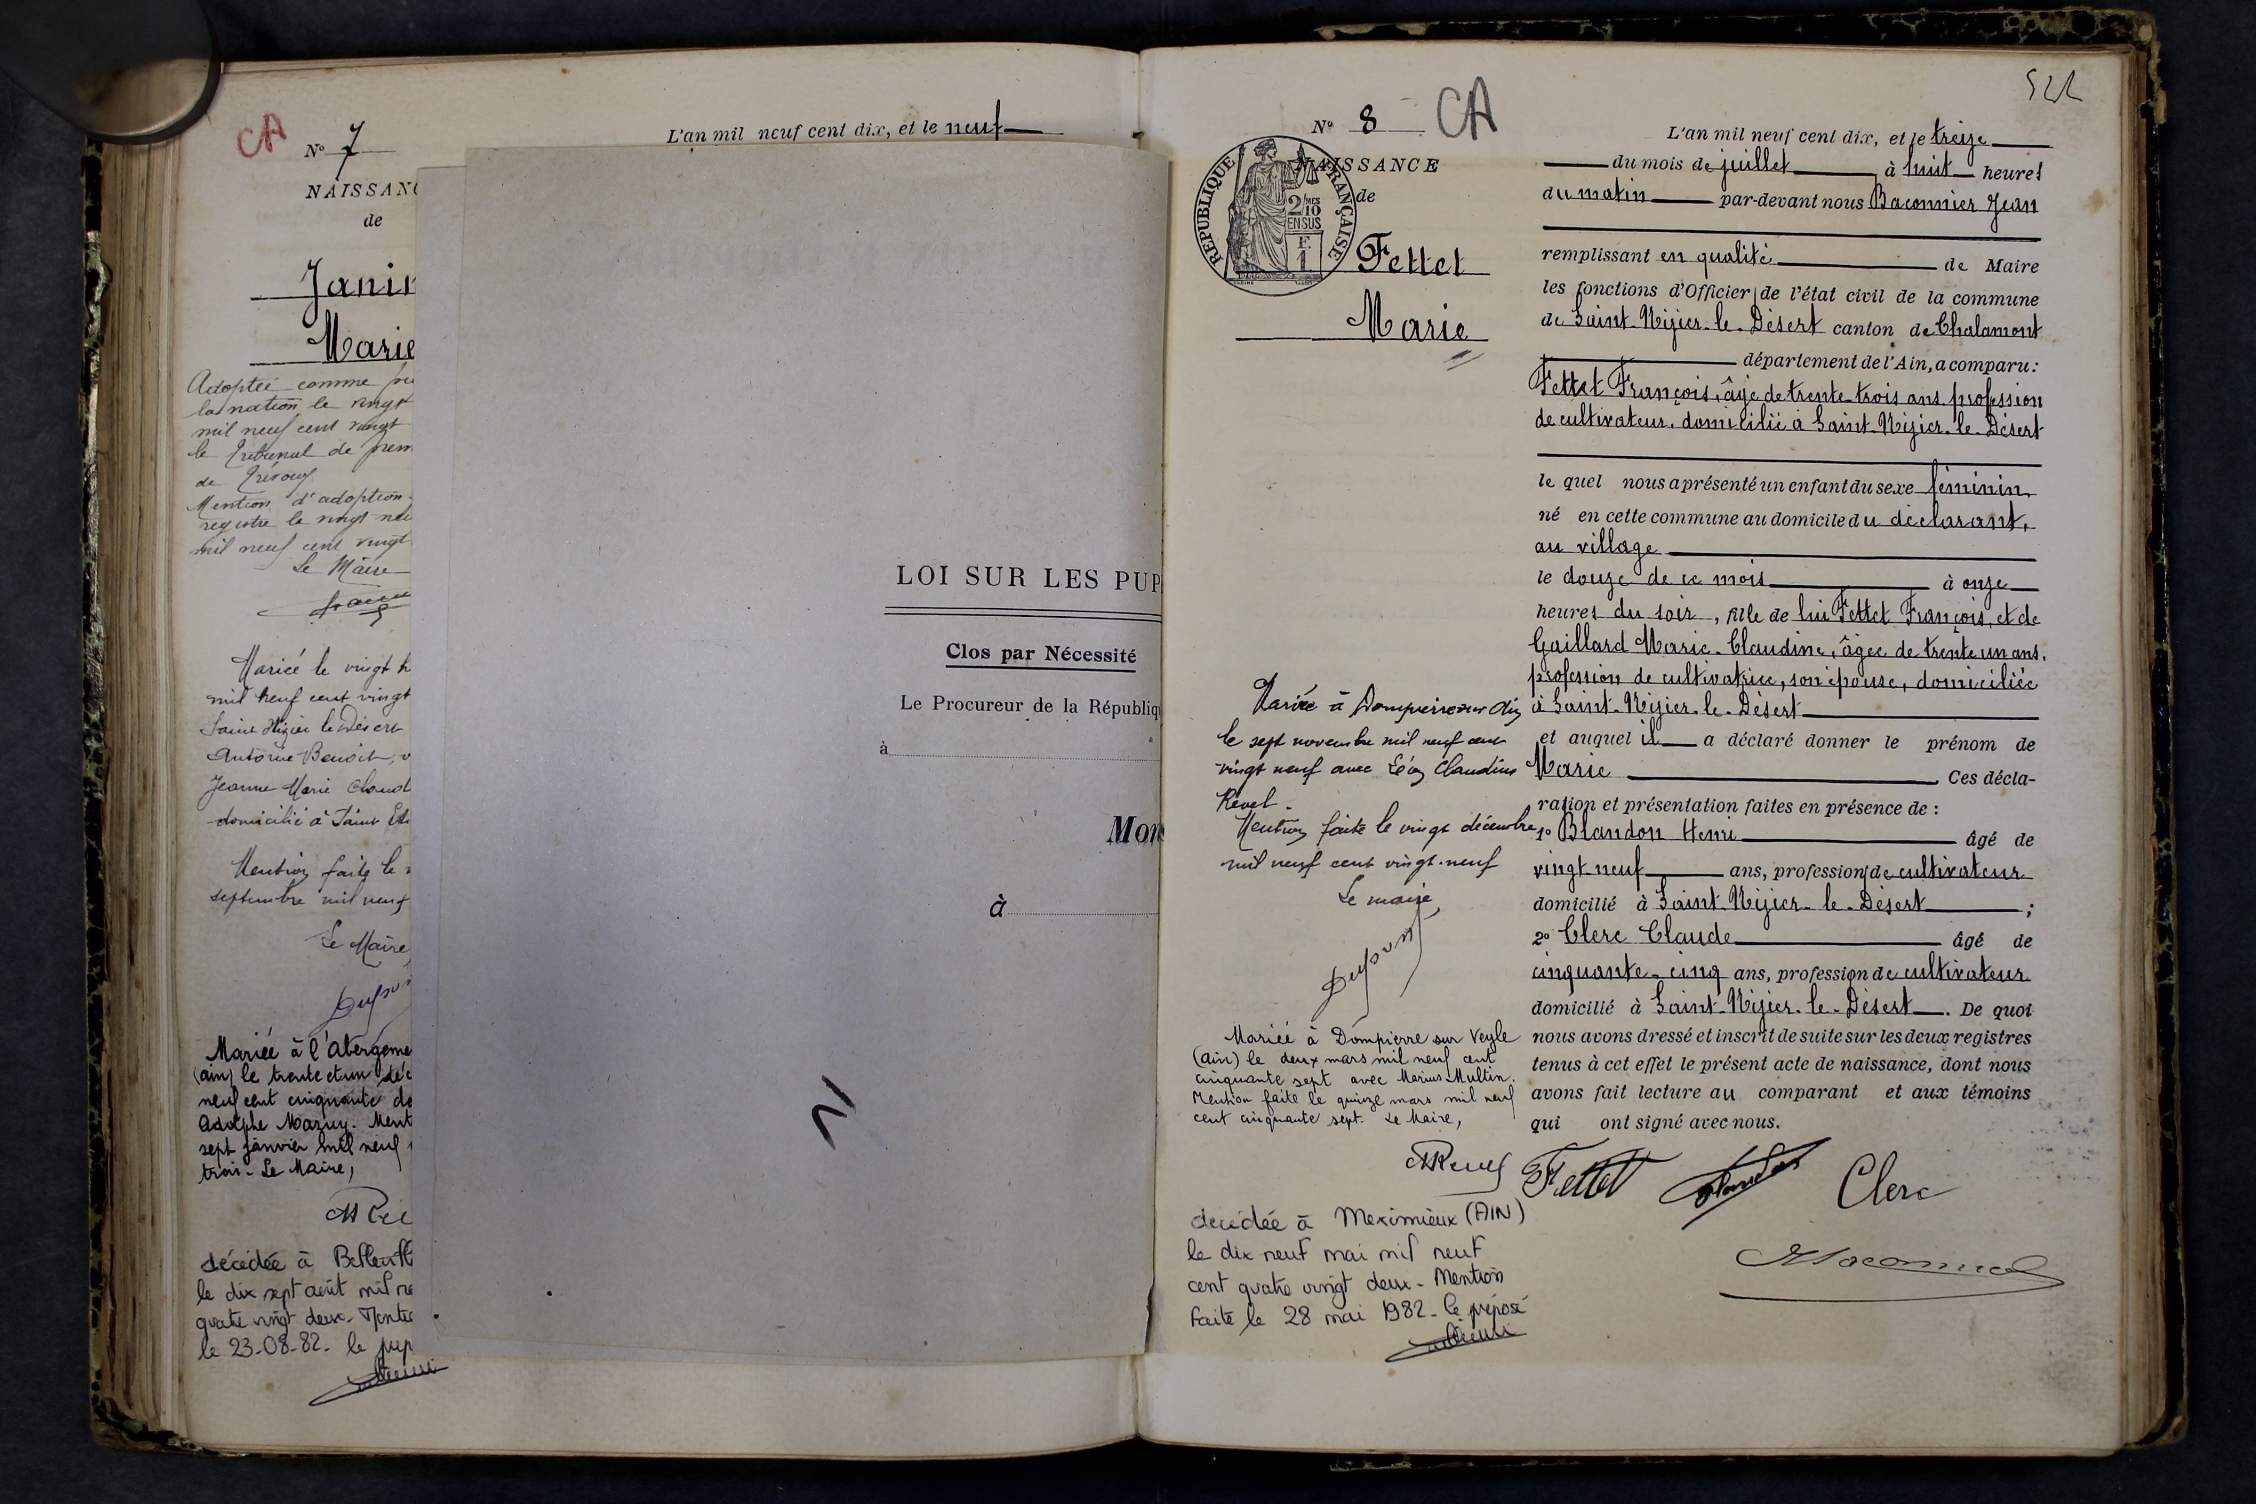 CA
N° 7
NAISSANC
de
Janin
Marie
L'an mil neuf cent dix, et le neuf
Adoptée comme pu
la nation le vingt
mil neuf cent vingt
le Tribunal de prem
de Trévoux
Mention d'adoption
registre le vingt neu
mil neuf cent vingt
Le Maire
Mariée le vingt h
mil neuf cent vingt
Saint Nizier le Désert
Antoine Benoit, v
Jeanne Marie Claud
domicilié à Saint
Mention faite le v
septembre mil neuf
Le Maire,
Mariée à l'Abergeme
(ain) le trente et un déc
neuf cent cinquante de
Adolphe Mazuy. Ment
sept janvier mil neuf
trois. Le Maire,
décédée à Bellevill
le dix sept août mil ne
quatre vingt deux. Mentio
le 23-08-82. le
LOI SUR LES PUP
Clos par Nécessité
Le Procureur de la Républiq
à
Mons
à
522
N° 8 CA
NAISSANCE
de
RÉPUBLIQUE FRANÇAISE
2/10
MES
EN SUS
F.
1.
Fettet
Marie
Mariée à Dompierre sur Ain
le sept novembre mil neuf cent
vingt neuf avec Léon Claudius
Revel.
Mention faite le vingt décembre
mil neuf cent vingt-neuf
Le maire,
Mariée à Dompierre sur Veyle
(ain) le deux mars mil neuf cent
cinquante sept avec Marius Multin.
Mention faite le quinze mars mil neuf
cent cinquante sept. Le Maire,
décédée à Meximieux (AIN)
le dix neuf mai mil neuf
cent quatre vingt deux - Mention
faite le 28 mai 1982 - le préposé
L'an mil neuf cent dix, et le treize
du mois de juillet à huit heures
du matin par-devant nous Baconnier Jean
remplissant en qualité de Maire
les fonctions d'Officier de l'état civil de la commune
de Saint-Nizier-le-Désert canton de Chalamont
département de l'Ain, a comparu:
Fettet François, âgé de trente trois ans, profession
de cultivateur, domicilié à Saint-Nizier-le-Désert
le quel nous a présenté un enfant du sexe féminin
né en cette commune au domicile du déclarant,
au village
le douze de ce mois à onze
heures du soir, fille de lui Fettet François, et de
Gaillard Marie-Claudine, âgée de trente un ans,
profession de cultivatrice, son épouse, domiciliée
à Saint-Nizier-le-Désert
et auquel il a déclaré donner le prénom de
Marie Ces décla-
ration et présentation faites en présence de :
1° Blandon Henri âgé de
vingt-neuf ans, profession de cultivateur
domicilié à Saint-Nizier-le-Désert ;
2° Clerc Claude âgé de
cinquante-cinq ans, profession de cultivateur
domicilié à Saint-Nizier-le-Désert. De quoi
nous avons dressé et inscrit de suite sur les deux registres
tenus à cet effet le présent acte de naissance, dont nous
avons fait lecture au comparant et aux témoins
qui ont signé avec nous.
Fettet Clerc